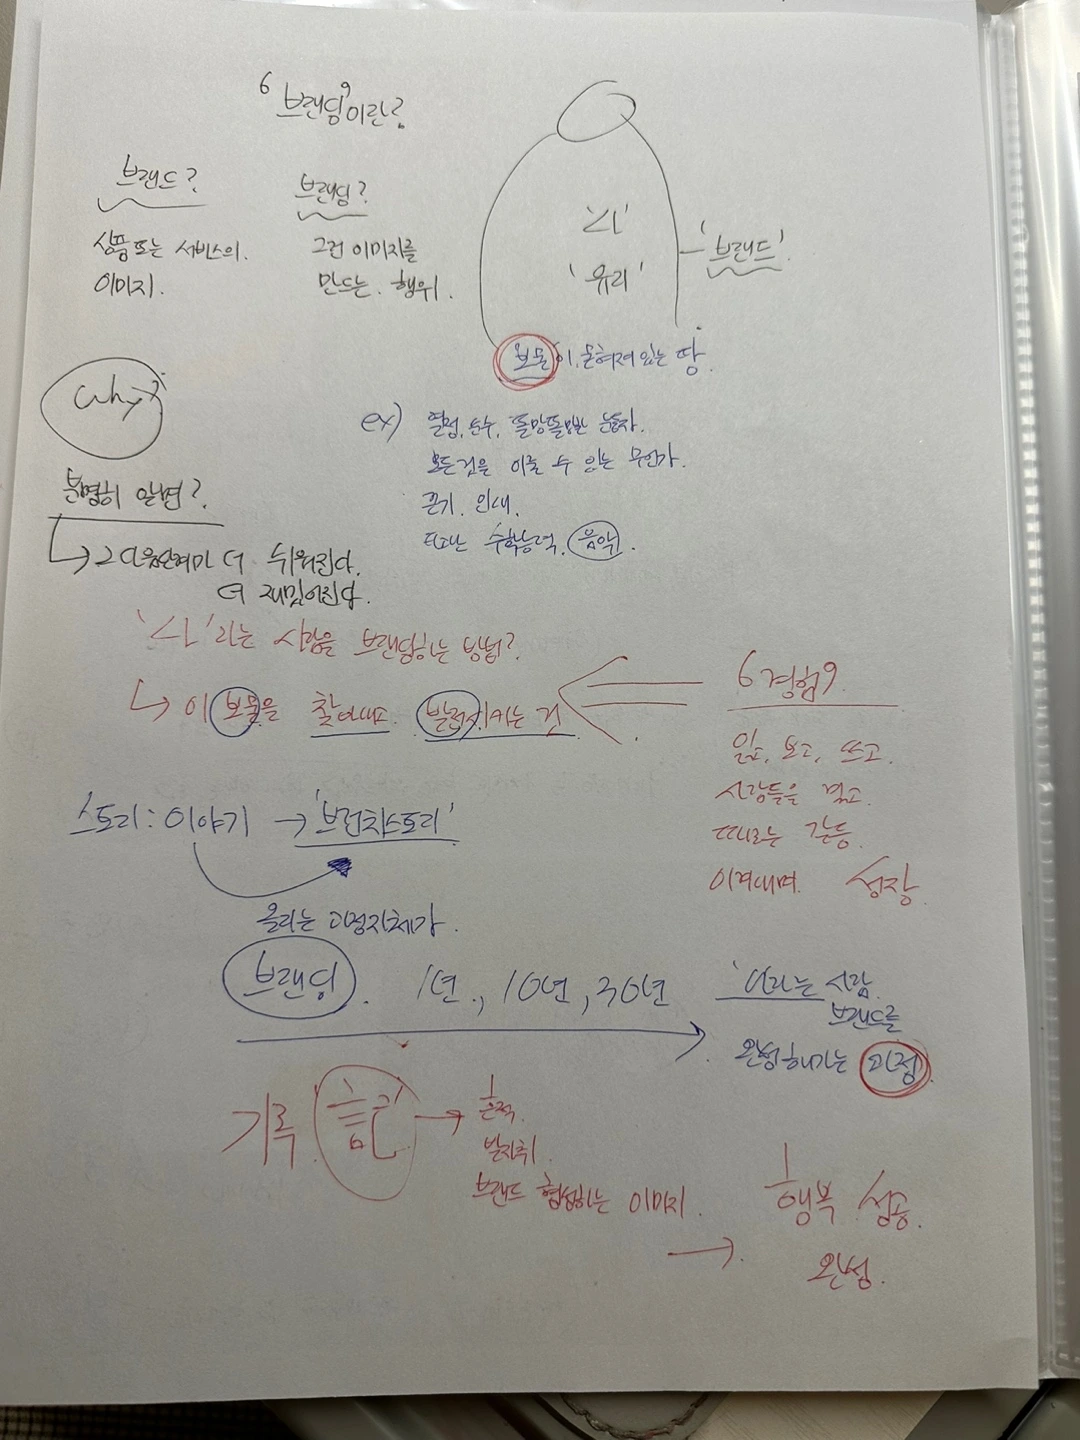 "브랜딩"이란?
브랜드?
상품또는 서비스의
이미지.
브랜딩?
그런 이미지를
만드는 행위.
'나'
'유리'
'브랜드'
보물이 묻혀져있는 땅.
why?
분명히 알면?
→ 그 다음단계가 더 쉬워진다.
더 재밌어진다.
ex) 열정, 순수, 똘망똘망한 눈동자.
모든것을 이룰 수 있는 무언가.
끈기. 인내.
타고난 수학능력, 음악.
'나'라는 사람을 브랜딩하는 방법?
→ 이 보물을 찾아내고 발전시키는 것
"경험"
읽고, 보고, 쓰고.
사람들을 믿고.
때로는 갈등.
이겨내며. 성장.
스토리: 이야기 → '브런치스토리'
올리는 과정자체가.
브랜딩. 1년, 10년, 30년
'나'라는 사람.
브랜드를
완성해가는 과정.
기록 記 → 흔적.
발자취.
브랜드 형성하는 이미지.
→ 행복. 성공.
완성.